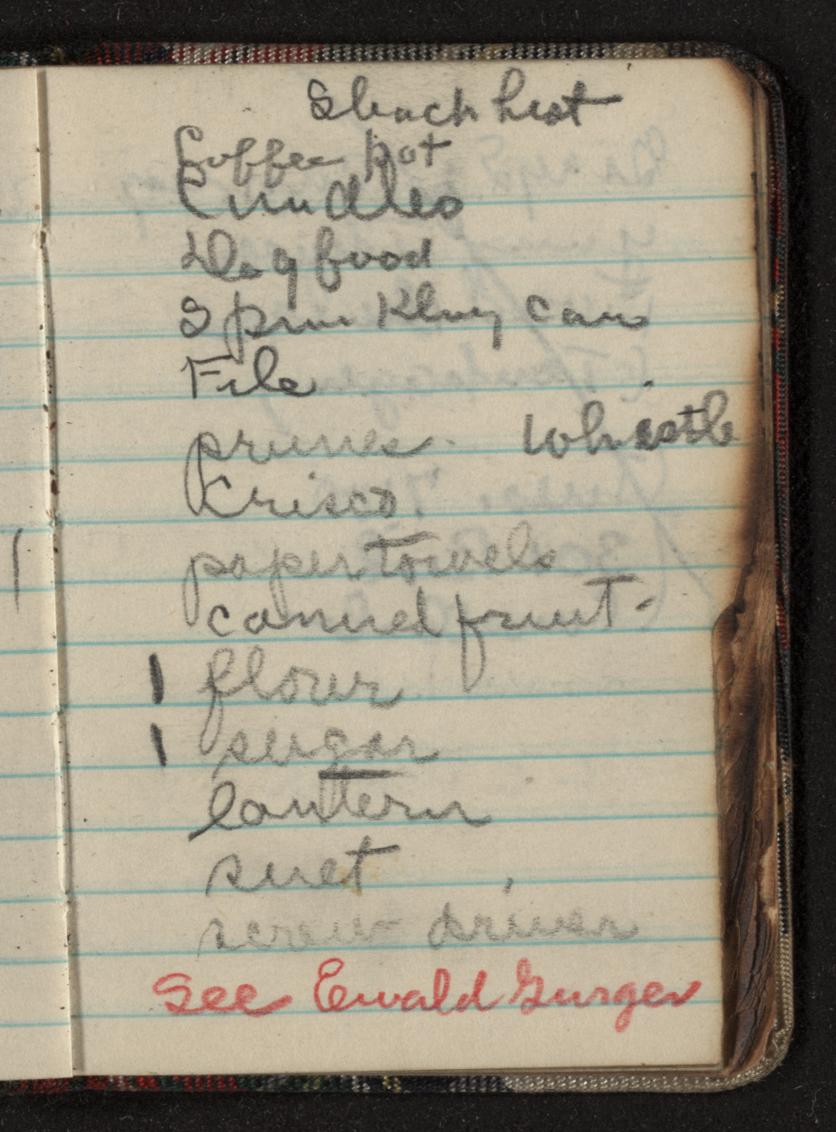 Shack List
Coffee pot
Candles
Dog food
Sprinkling can
File
prunes. Whistle
Krisco
paper towels
canned fruit.
| flour
| sugar
lantern
suet
screw driver
See Ewald